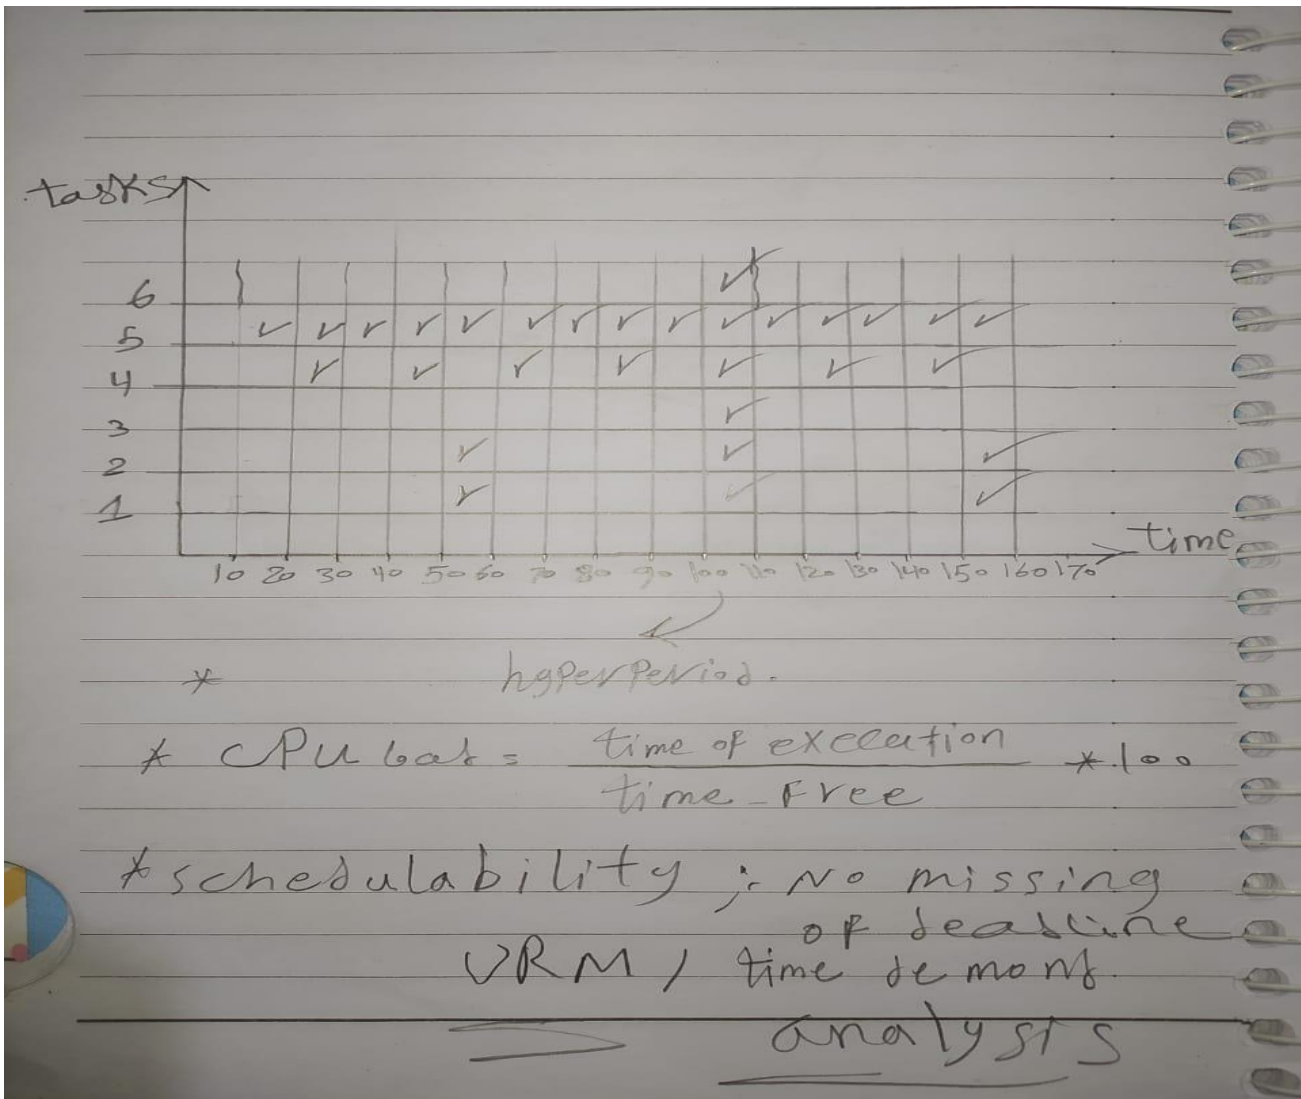 tasks
6
5
4
3
2
1
time
10 20 30 40 50 60 70 80 90 100 110 120 130 140 150 160 170
hyperperiod.
*
* CPU load = time of execution * 100
time - Free
* schedulability ; No missing
of deadline
URM, time demond
analysis